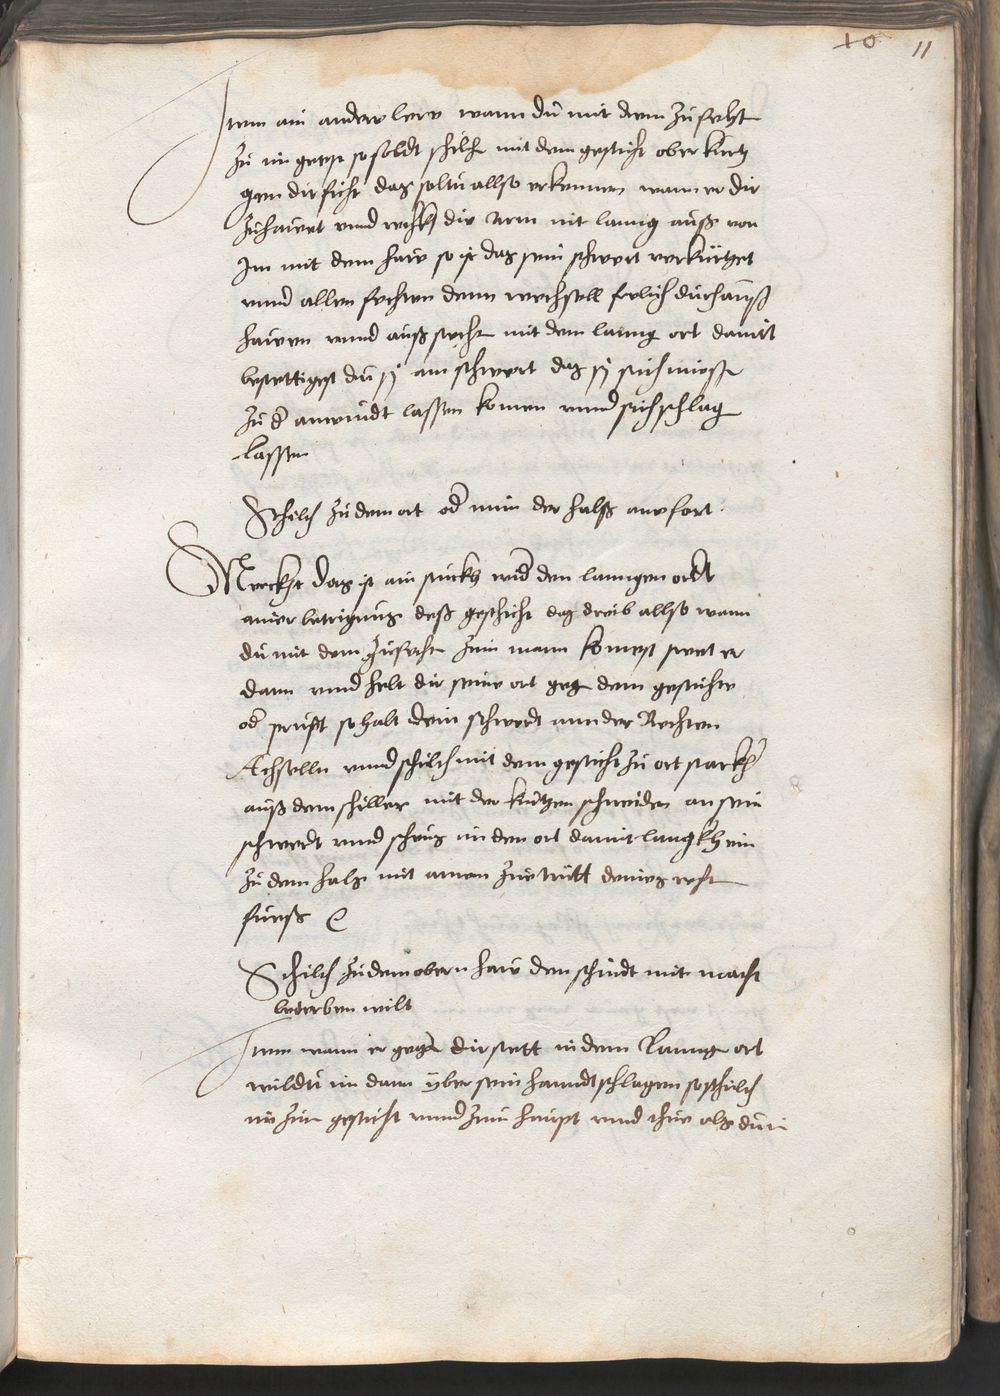 10 11
Item ain ander lere wann dü mit dem zufecht
zu im geest so soldt schilh mit dem gesicht ober kurtz
gem dir ficht das soltü allso erkennen wann er dir
zuhawet vnnd reckht die Arm nit lanng auß von
Im mit dem haw so ist das sein schwert verkürtzet
vnnd allen fechten denn wechsell frelich durchauß
hawen vnnd auß stecht mit dem lanng ort damit
bestettigest dü sy am schwert das sy sich müessen
zu d anwindt lassen komen vnnd sich schlag
lassen
Schilch zü dem ort od nim der halß ane fort
Merckht das ist ain stückh wid den lanngen ordt
ainer betrigung deß gesicht das dreib allso wann
dü mit dem zufecht zum mann kompst stet er
dann vnnd helt dir seine ort geg dem gesichte
od prüst so halt dein schwerdt ann der Rechten
Achselln vnnd schilch mit dem gesicht zü ort starckh
auß dem schiller mit der kurtzen schneiden an sein
schwerdt vnnd scheüs im den ort damit langkh ein
zü dem halß mit ainem zuetritt deines recht
fueß
Schilch zü dem obern haw den schindt mit macht
bederben wilt
Item wann er gegen dir stett in dem Lanng ort
wildtü im dann yber sein hanndt schlagen so schilch
im zum gesicht vnnd zum haüpt vnnd thue als dü in